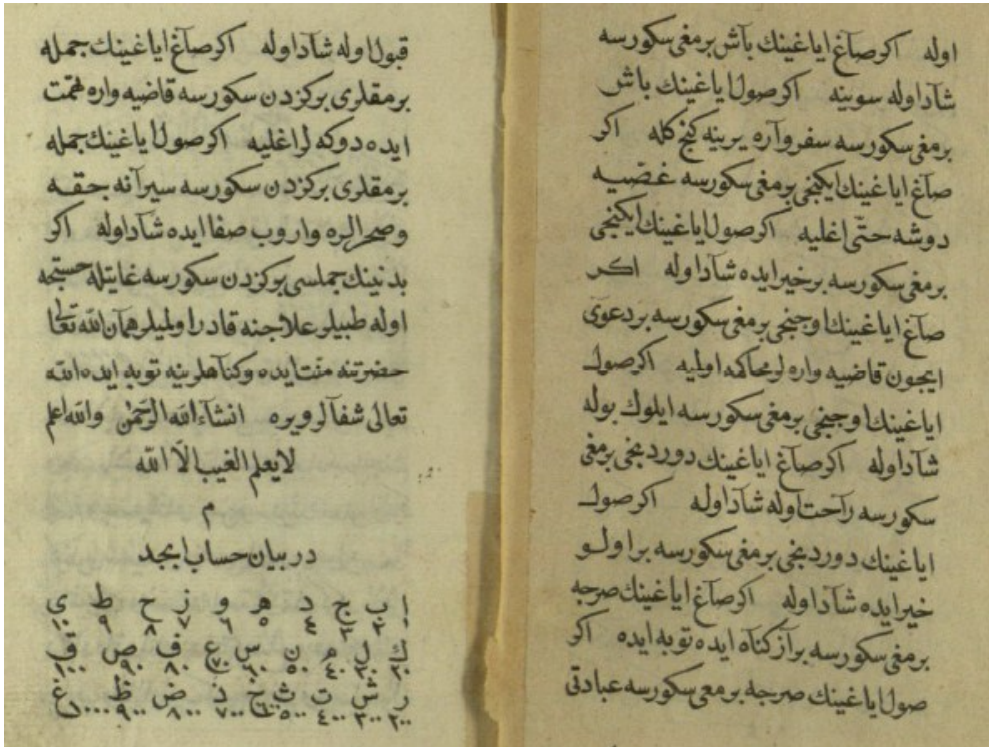 اوله اكر صاغ اياغينك باش برمغى سكورسه
شاد اوله سوينه اكر صول اياغينك باش
برمغى سكورسه سفر واره يرينه كنج كله اكر
صاغ اياغينك ايكنجى برمغى سكورسه غضبه
دوشه حتى اغليه اكر صول اياغينك ايكنجى
برمغى سكورسه بر خير ايده شاد اوله اكر
صاغ اياغينك اوجنجى برمغى سكورسه بر دعوى
ايجون قاضيه واره لر محاكمه اوليه اكر صول
اياغينك اوجنجى برمغى سكورسه ايلوك بوله
شاد اوله اكر صاغ اياغينك دوردنجى برمغى
سكورسه راحت اوله شاد اوله اكر صول
اياغينك دوردنجى برمغى سكورسه بر اولو
خير ايده شاد اوله اكر صاغ اياغينك صرجه
برمغى سكورسه بر از كناه ايده توبه ايده اكر
صول اياغينك صرجه برمغى سكورسه عبادتى
قبول اوله شاد اوله اكر صاغ اياغينك جمله
برمقلرى بركزدن سكورسه قاضيه واره همت
ايده دوكه لر اغليه اكر صول اياغينك جمله
برمقلرى بركزدن سكورسه سيرانه جقه
وصحرالره واروب صفا ايده شاد اوله اكر
بدنينك جملسى بركزدن سكورسه غايتله خسته
اوله طبيبلر علاجنه قادر اولميلر همان الله تعالى
حضرتنه منت ايده وكناهلرينه توبه ايده الله
تعالى شفالر ويره انشاء الله الرحمن والله اعلم
لا يعلم الغيب الا الله
م
در بيان حساب ابجد
ا ب ج د ه و ز ح ط ى
١ ٢ ٣ ٤ ٥ ٦ ٧ ٨ ٩ ١٠
ك ل م ن س ع ف ص ق
٢٠ ٣٠ ٤٠ ٥٠ ٦٠ ٧٠ ٨٠ ٩٠ ١٠٠
ر ش ت ث خ ذ ض ظ غ
٢٠٠ ٣٠٠ ٤٠٠ ٥٠٠ ٦٠٠ ٧٠٠ ٨٠٠ ٩٠٠ ١٠٠٠